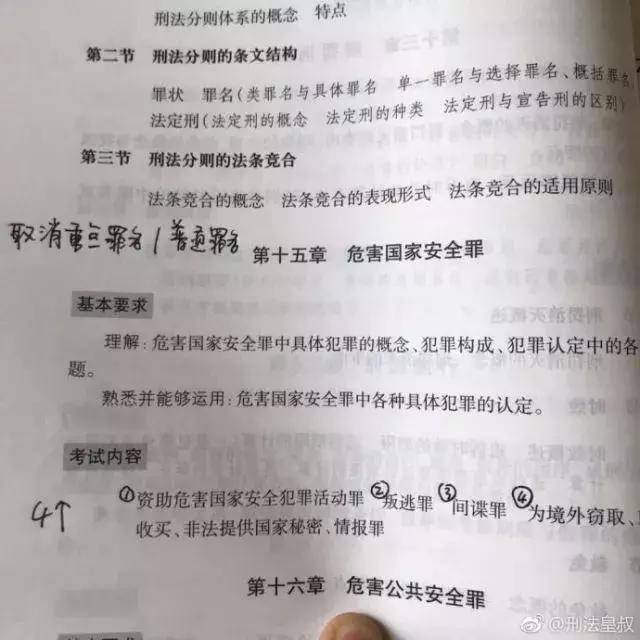 刑法分则体系的概念 特点
第二节 刑法分则的条文结构
罪状 罪名(类罪名与具体罪名 单一罪名与选择罪名、概括罪名)
法定刑(法定刑的概念 法定刑的种类 法定刑与宣告刑的区别)
第三节 刑法分则的法条竞合
法条竞合的概念 法条竞合的表现形式 法条竞合的适用原则
取消重点罪名/普通罪名
第十五章 危害国家安全罪
基本要求
理解:危害国家安全罪中具体犯罪的概念、犯罪构成、犯罪认定中的各
题。
熟悉并能够运用:危害国家安全罪中各种具体犯罪的认定。
考试内容
4个
①资助危害国家安全犯罪活动罪 ②叛逃罪 ③间谍罪 ④为境外窃取、
收买、非法提供国家秘密、情报罪
第十六章 危害公共安全罪
@刑法皇叔